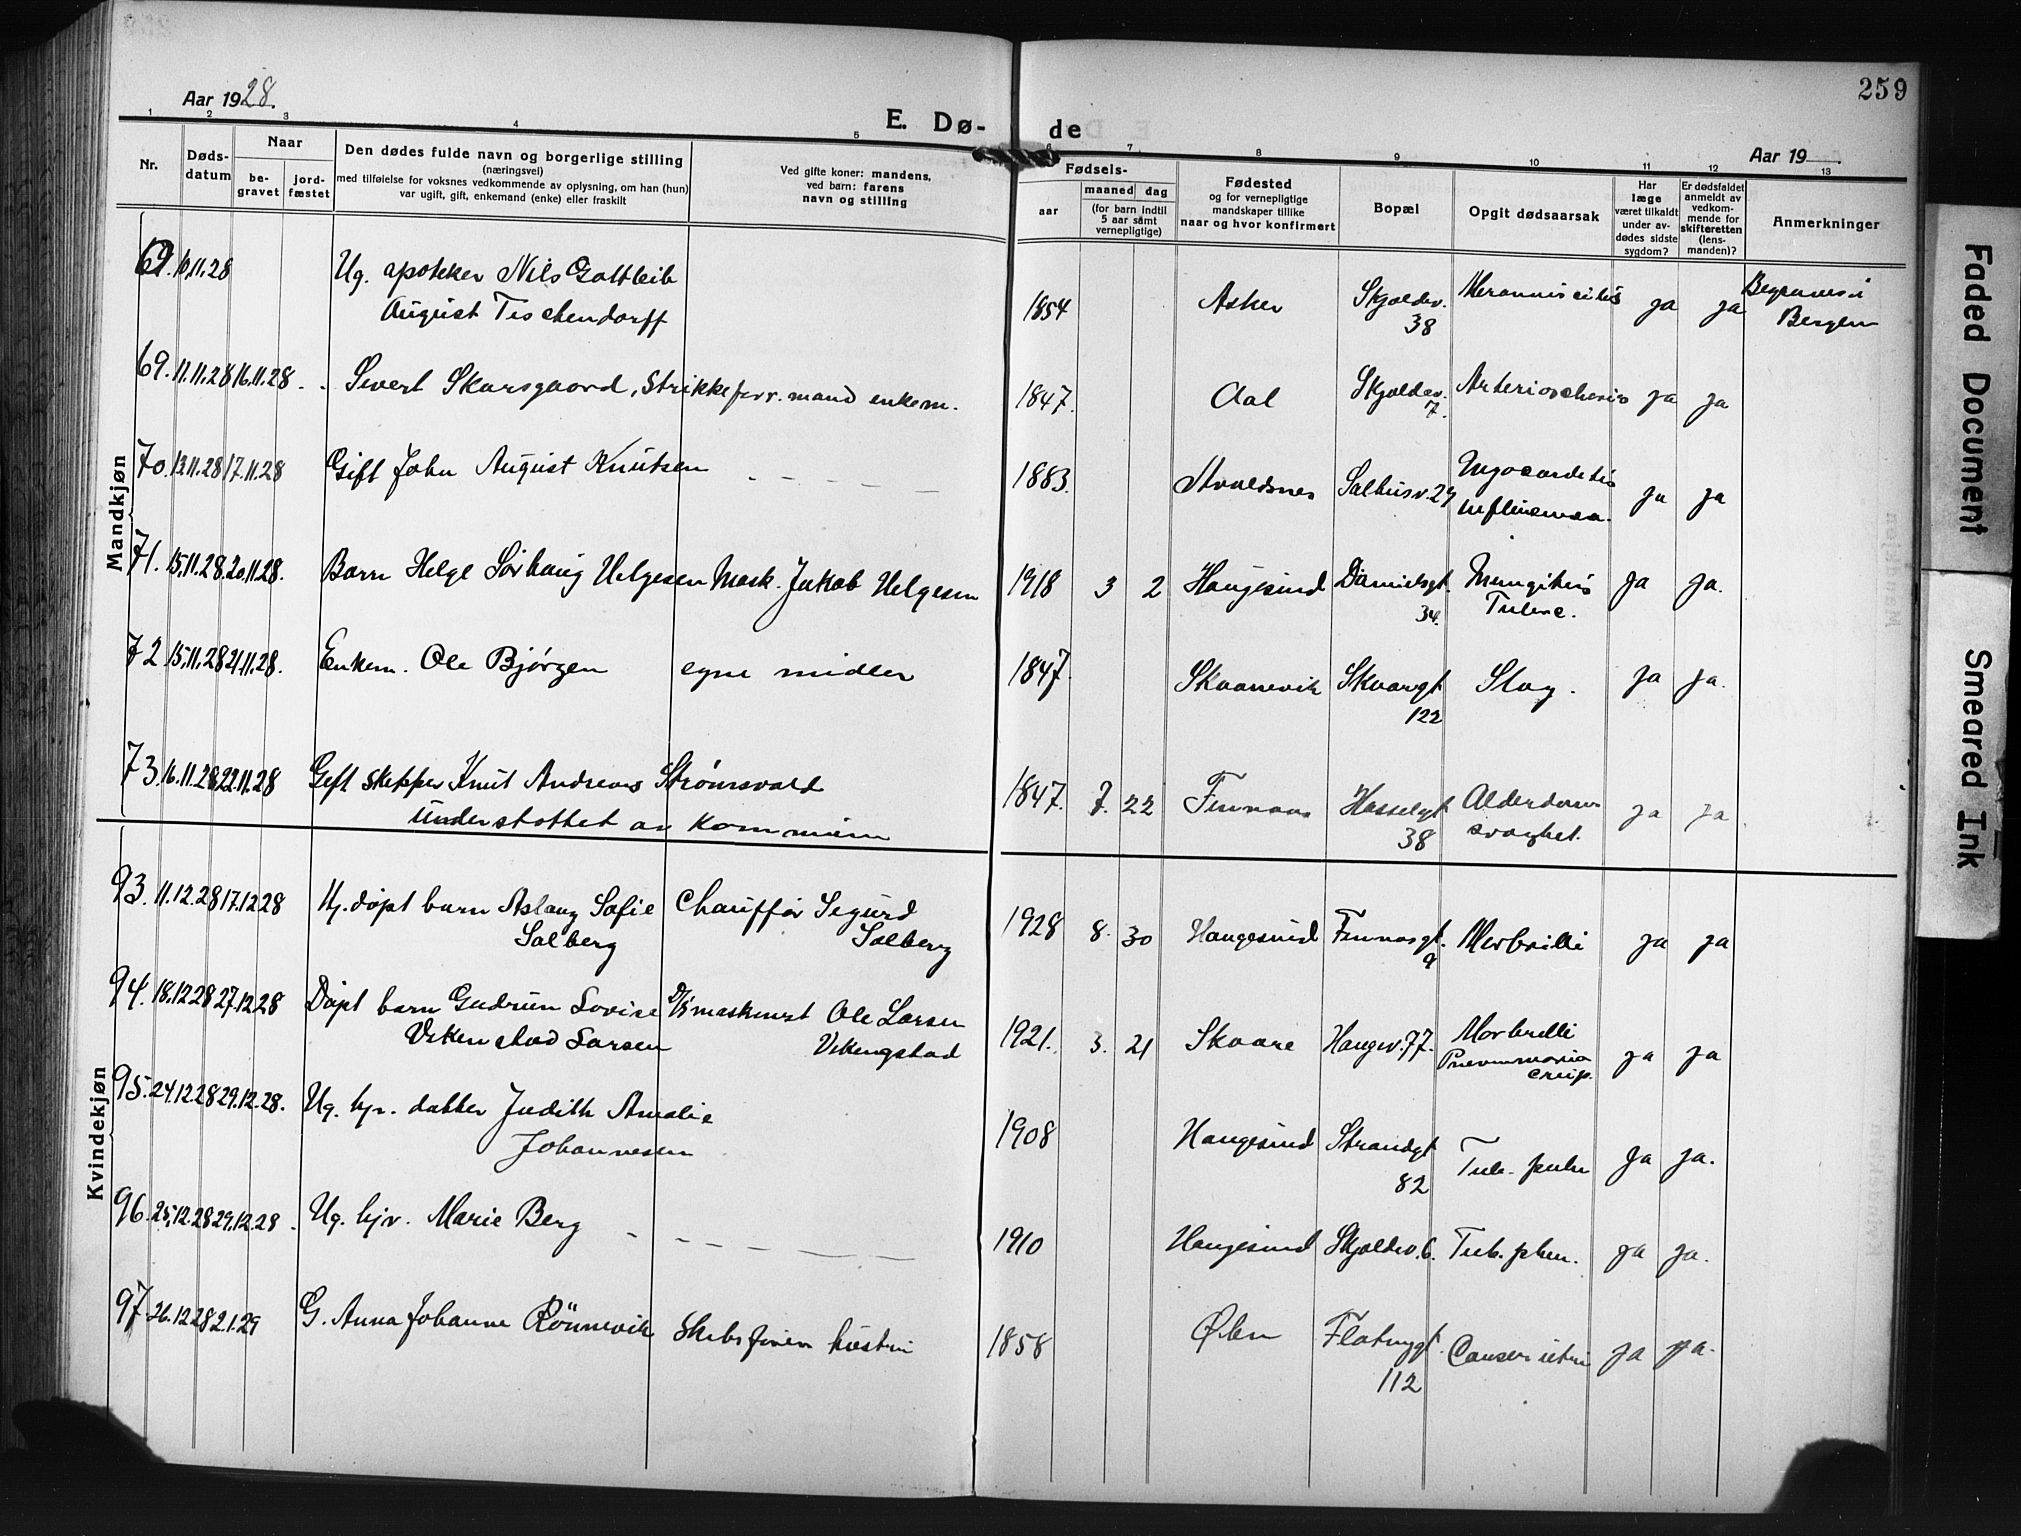 259
Aar 1928.
E. Dø-de
Aar 19
1 2 3 4 5 6 7 8 9 10 11 12 13
Nr.
Døds-
datum
Naar
be-
gravet
jord-
fæstet
Den dødes fulde navn og borgerlige stilling
(næringsvei)
med tilføielse for voksnes vedkommende av oplysning, om han (hun)
var ugift, gift, enkemand (enke) eller fraskilt
Ved gifte koner: mandens,
ved børn: farens
navn og stilling
Fødsels-
aar
maaned
dag
(for barn indtil
5 aar samt
vernepligtige)
Fødested
og for vernepligtige
mandskaper tillike
naar og hvor konfirmert
Bopæl
Opgit dødsaarsak
Har
læge
været tilkaldt
under av-
dødes sidste
sygdom?
Er dødsfaldet
anmeldt av
vedkom-
mende for
skifteretten
(lens-
manden)?
Anmerkninger
Mandkjøn
11.28 Ug. apotheker Nils Gottleib 1854 Asker Skjoldev. ja ja Begraves i
August Tischendorff 38 Bergen
69. 11.11.28 16.11.28 Sivert Skarsgaard, Strikkeforr. mand enkem. 1847. Aal Skjoldev. ja ja
7.
70. 13.11.28 17.11.28 Gift John August Knutsen 1883. Avaldsnes Salhusv. 29 Myocarditis ja ja
Influensa.
71. 15.11.28 20.11.28. Barn Helge Sørhaug Helgesen Mask. Jakob Helgesen 1918 3 2 Haugesund Danielsgt. ja ja.
34.
72. 15.11.28 21.11.28. Enkem. Ole Bjørgen egne midler 1847. Skaanevik Skaaregt. Slag. ja ja.
122
73. 16.11.28 22.11.28 Gift skipper Knut Andreas Strømsvold 1847. 7. 22 Finnaas Hasselgt. Alderdoms ja ja.
Understøttet av Kommunen 38 svaghet.
Kvindekjøn
93. 11.12.28 17.12.28 døpt barn Aslaug Sofie Chauffør Sigurd 1928 8. 30 Haugesund Finnasgt. Morbilli ja ja
Solberg Solberg 9
94. 18.12.28 27.12.28 Døpt barn Gudrun Lovise maskinist Ole Larsen 1921. 3. 21 Skaare Haugev. 77. Morbilli ja ja
Vikenstad Larsen Vikingstad Pneummonia
crup.
95. 24.12.28 29.12.28. Ug. hjv. datter Judith Amalie 1908 Haugesund Strandgt. Tub. pulm ja ja.
Johannesen 82
96. 25.12.28 29.12.28. Ug. hjv. Marie Berg 1910 Haugesund Skjoldev. 6. Tub. ja ja.
97. 26.12.28 2.1.29 G. Anna Johanne Rönnevik Skibsfører hustru 1858 Ølen Flotmygt. ja ja.
112
Faded Document
Smeared Ink